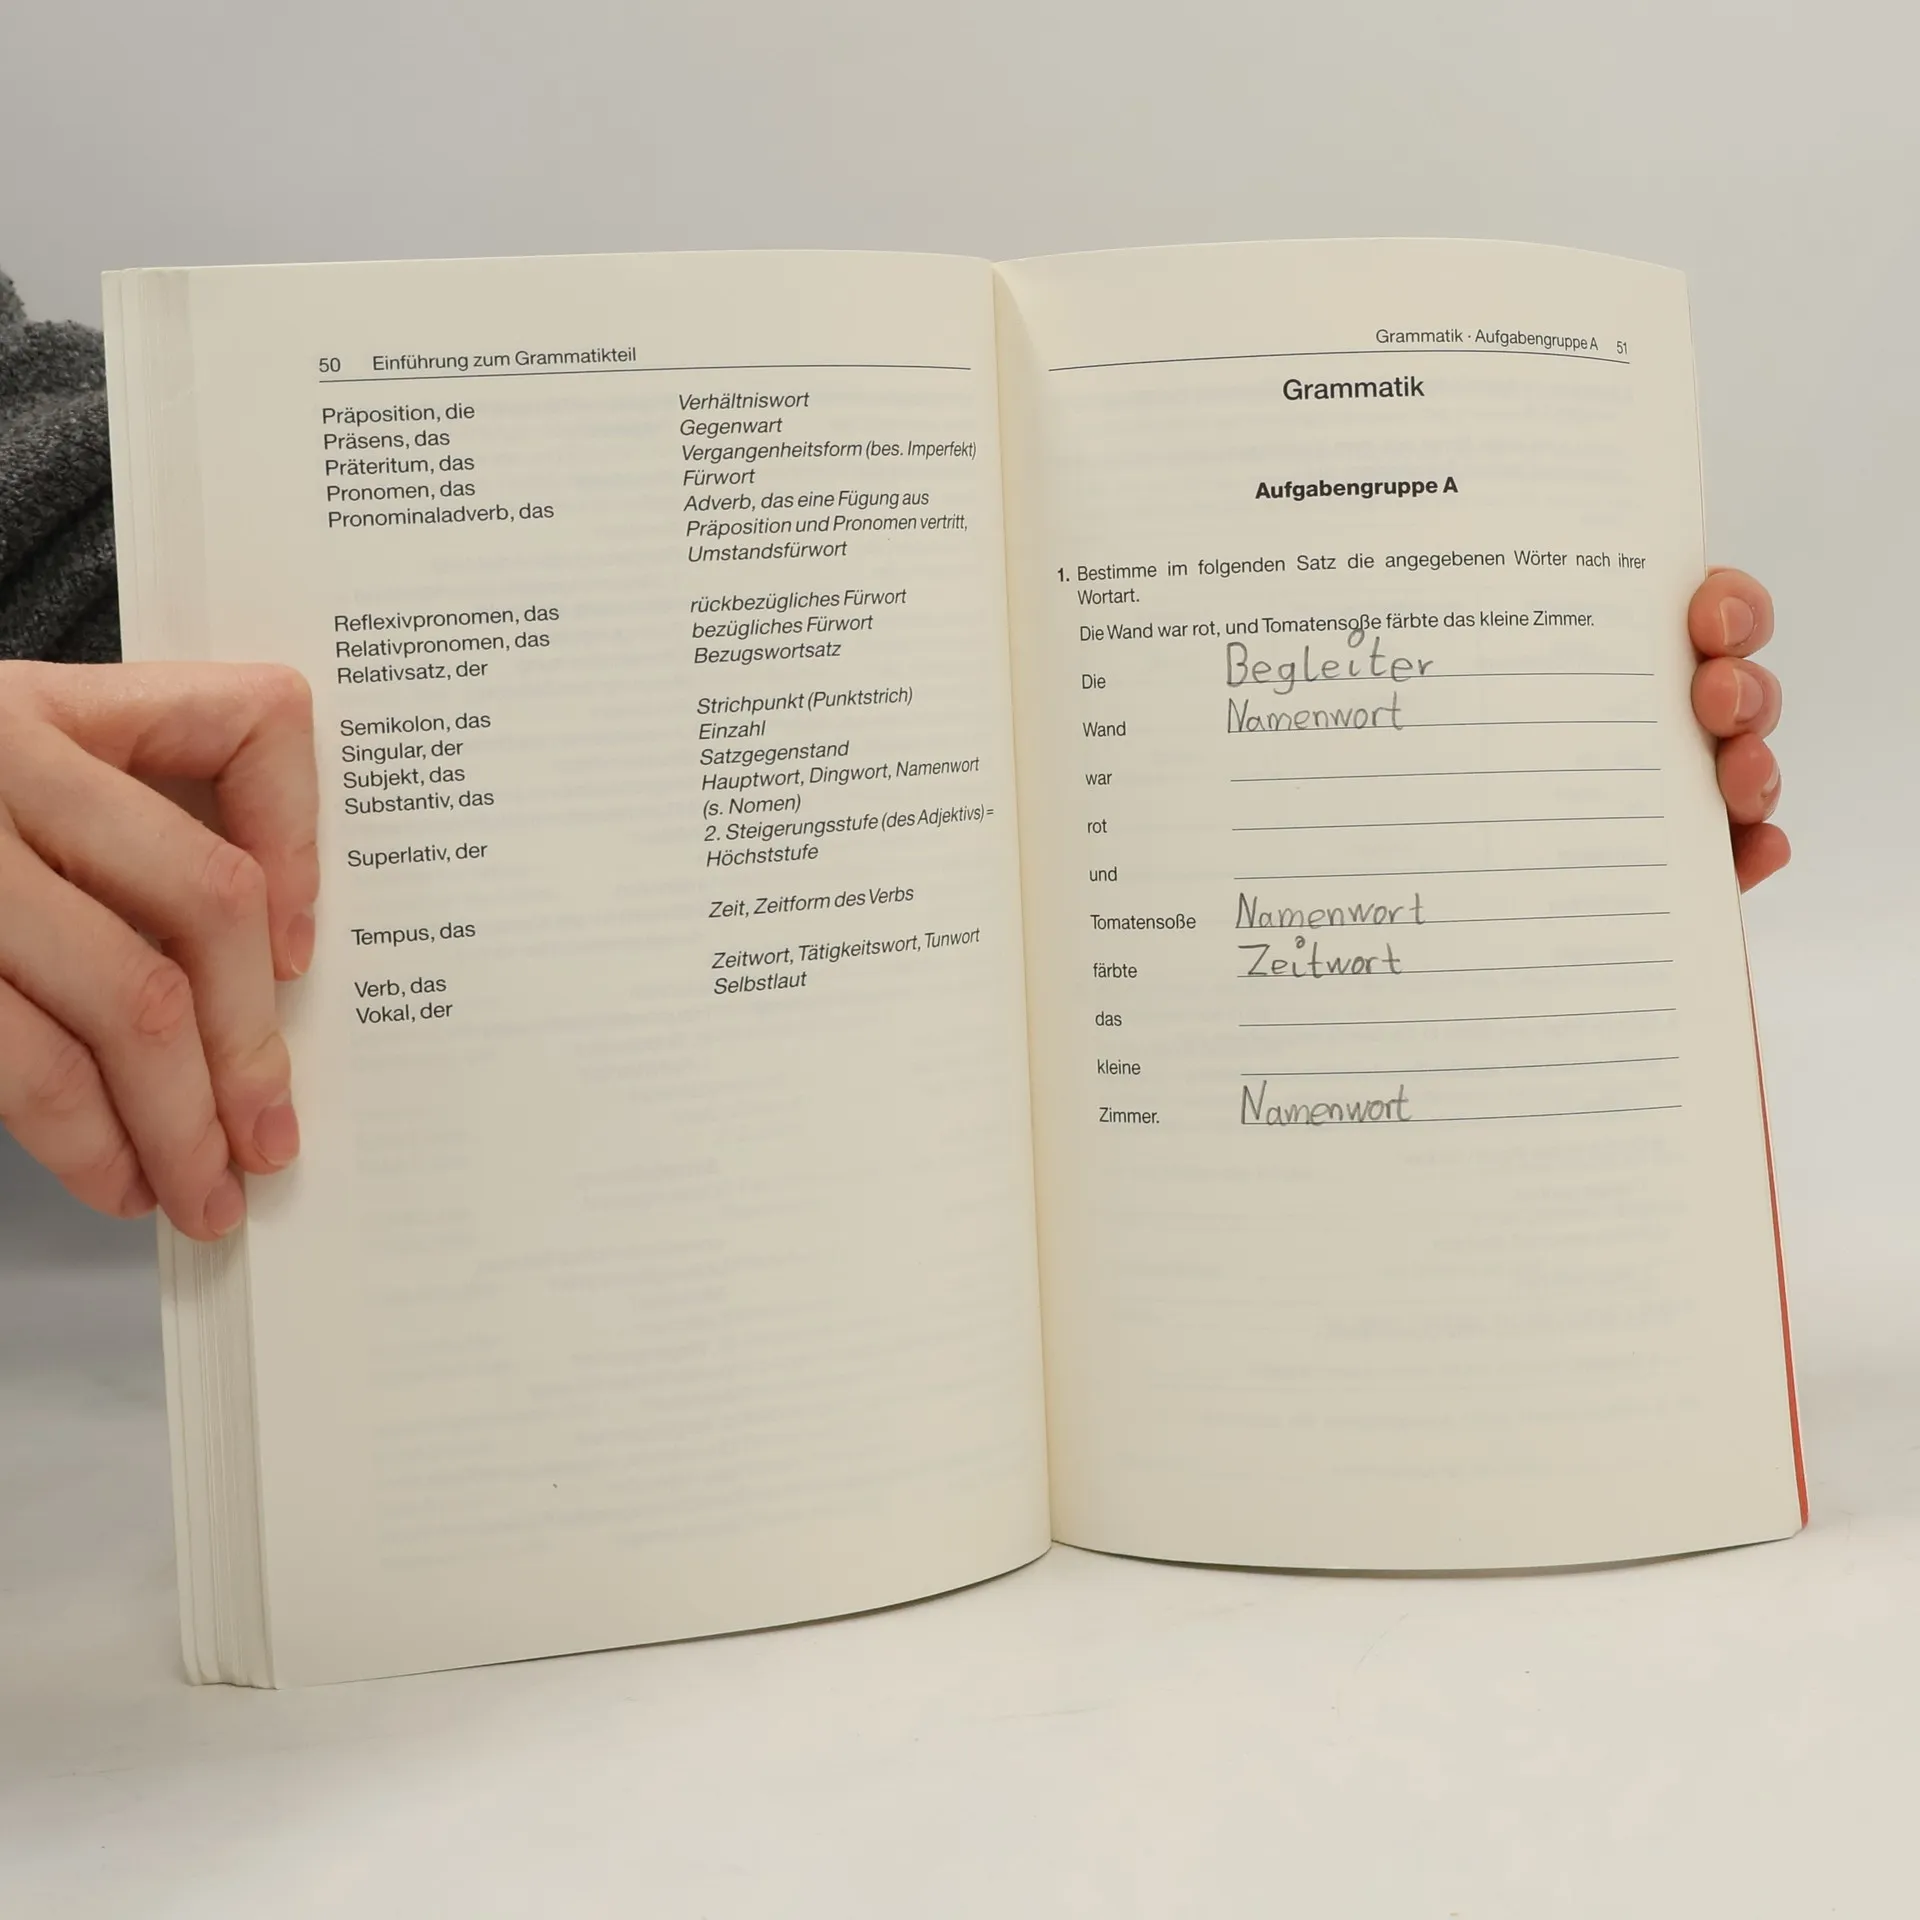 50 Einführung zum Grammatikteil
Präposition, die Verhältniswort
Präsens, das Gegenwart
Präteritum, das Vergangenheitsform (bes. Imperfekt)
Pronomen, das Fürwort
Pronominaladverb, das Adverb, das eine Fügung aus
Präposition und Pronomen vertritt,
Umstandsfürwort
Reflexivpronomen, das rückbezügliches Fürwort
Relativpronomen, das bezügliches Fürwort
Relativsatz, der Bezugswortsatz
Semikolon, das Strichpunkt (Punktstrich)
Singular, der Einzahl
Subjekt, das Satzgegenstand
Substantiv, das Hauptwort, Dingwort, Namenwort
(s. Nomen)
Superlativ, der 2. Steigerungsstufe (des Adjektivs) =
Höchststufe
Tempus, das Zeit, Zeitform des Verbs
Verb, das Zeitwort, Tätigkeitswort, Tunwort
Vokal, der Selbstlaut
Grammatik · Aufgabengruppe A 51
Grammatik
Aufgabengruppe A
1. Bestimme im folgenden Satz die angegebenen Wörter nach ihrer
Wortart.
Die Wand war rot, und Tomatensoße färbte das kleine Zimmer.
Die Begleiter
Wand Namenwort
war
rot
und
Tomatensoße Namenwort
färbte Zeitwort
das
kleine
Zimmer. Namenwort